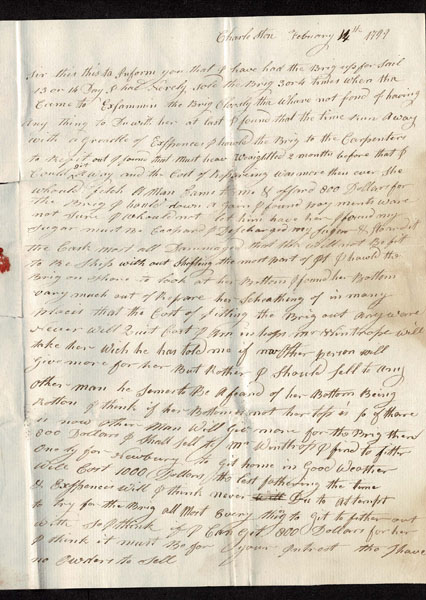 Charleston February 14th 1799
Sir this is to Inform you that I have had the Brig up for Sail
13 or 14 Day I had Nerely sold the Brig 3 or 4 times When tha
Came to Exsammen the Brig Closely tha Whare not fond of having
Any thing to Do with her at last I found that the time Run Away
with a Grendle of Exspence I hauld the Brig to the Carpenters
to Refit out I found that Must have Waighted 2 months before that I
Could get Away and the Cost of Repareing was more then ever She
Whould fetch A Man Came to me & offard 800 Dollars for
The Brig down I found payments ware
not Sure I Whould not let him have her I found my
Sugar must Be Coopard I Discharged my Sugar &
the Cask Most all Dammaged that tha will not Be fit
to Be Ship with out Shifting the most part of It I hauld the
Brig on Shore to look at her Bottom I found her Bottom
vary much out of Repare her Sheathing of in many
places that the Cost of fitting the Brig out Any ware
Never Will Quit Cost I Am in hops Mr Winthrope Will
take her Wich he has told me if no other person will
Give more for her But Rother I Should Sell to Any
other man he Seemes to Be Afeard of her Bottom Being
Rotton I think if her Bottom is not her top is So if thare
is now other Man Will Give more for the Brig then
800 Dollars I Shall Sell to Mr Winthrop I find to fitt
Only for Newbury to Git home in Good Weather
Will Cost 1000 Dollars the Cost fathering the time
& Exspence Will I think never Do to Attempt
to try for the Brig all Most Every thing to Git to fither out
With So I think if I Can Git 800 Dollars for her
I think it must Be for your Intrest tho I have
no Orders to Sell